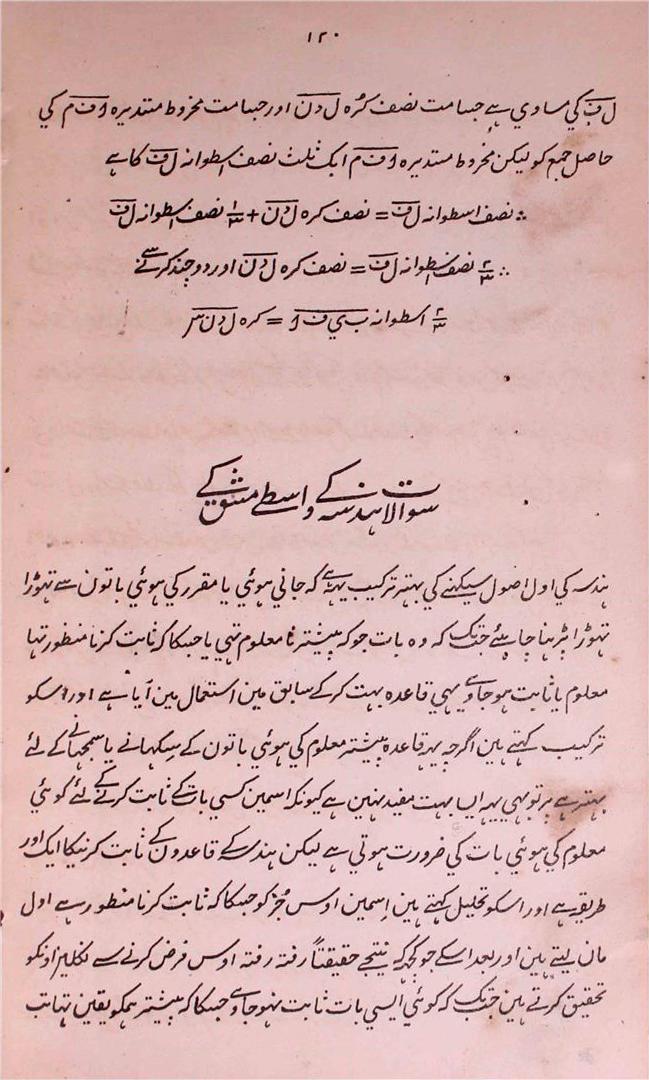 ۱۲۰
ل ق کي مساوي ہے جسامت نصف کرُہ ل دن اور جسامت مخروط مستدیرہ و ق م کي
حاصل جمع کو لیکن مخروط مستدیرہ و ق م ایک ثلث نصف اسطوانہ ل ق کا ہے
∴ نصف اسطوانہ ل ق = نصف کرہ ل دن + ۱/۳ نصف اسطوانہ ل ق
∴ ۲/۳ نصف اسطوانہ ل ق = نصف کرہ ل دن اور دو چند کرنے سے
۲/۳ اسطوانہ ب ي ف و = کرہ ل دن سر
سوالات ہندسہ کے واسطے مشق کے
ہندسہ کي اول اصول سیکہنے کي بہتر ترکیب یہہ ہے کہ جاني ہوئي یا مقرر کي ہوئي باتون سے تہوڑا
تہوڑا بڑہنا چاہئے جبتک کہ وہ بات جو کہ پیشتر نا معلوم تہي یا جسکا کہ ثابت کرنا منظور تہا
معلوم یا ثابت ہو جاوے یہي قاعدہ بہت کرکے سابق مین استعمال مین آیا ہے اور اسکو
ترکیب کہتے ہین اگرچہ یہہ قاعدہ پیشتر معلوم کي ہوئي باتون کے سکہانے یا سمجہانے کے لئے
بہتر ہے پر تو بہي یہہ ایسا بہت مفید نہین ہے کیونکہ اسمین کسي بات کے ثابت کرنے کے لئے کوئي
معلوم کي ہوئي بات کي ضرورت ہوتي ہے لیکن ہندسہ کے قاعدون کے ثابت کرنیکا ایک اور
طریقہ ہے اور اسکو تحلیل کہتے ہین اِسمین اوس جُز کو جسکا کہ ثابت کرنا منظور ہے اول
مان لیتے ہین اور بعد اسکے جو کچہہ کہ نتیجے حقیقتاً رفتہ رفتہ اوس فرض کرنے سے نکلین اونکو
تحقیق کرتے ہین جبتک کہ کوئي ایسي بات ثابت نہو جاوے جسکا کہ پیشتر ہمکو یقین تہا تب